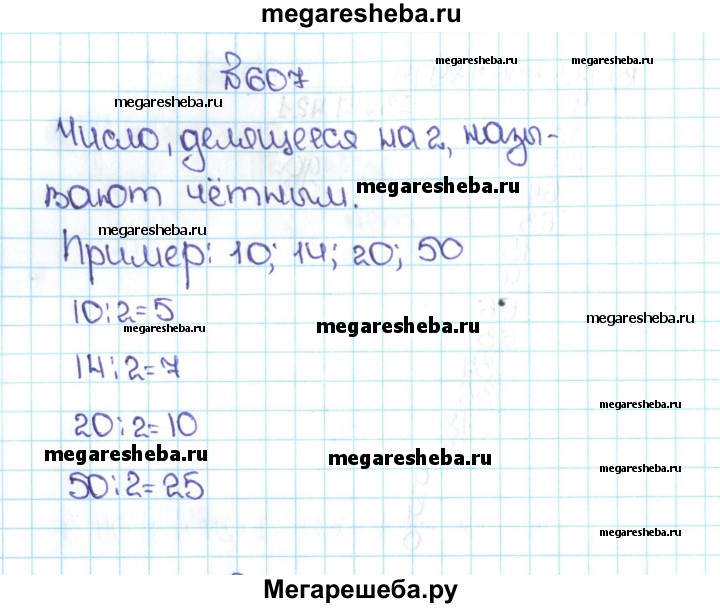 megaresheba.ru
№607
megaresheba.ru
megaresheba.ru
Число, делящееся на 2, назы-
megaresheba.ru
megaresheba.ru
вают чётным.
megaresheba.ru
megaresheba.ru
megaresheba.ru
Пример: 10; 14; 20; 50
10:2=5
megaresheba.ru
megaresheba.ru
megaresheba.ru
14:2=7
megaresheba.ru
20:2=10
megaresheba.ru
megaresheba.ru
megaresheba.ru
50:2=25
megaresheba.ru
megaresheba.ru
Мегарешеба.ру